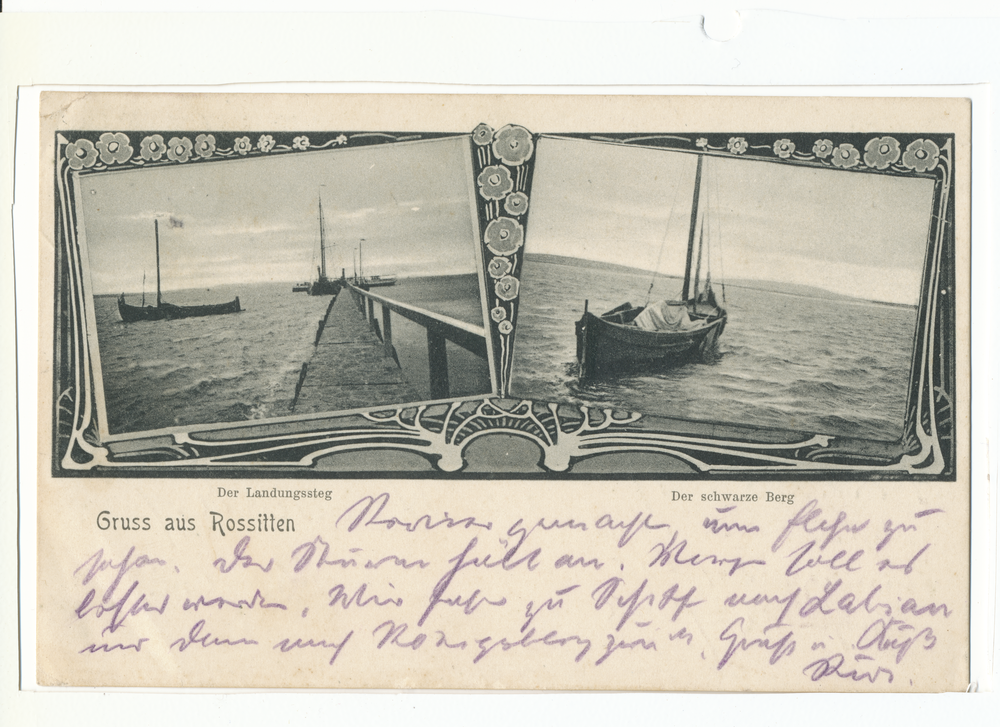 Der Landungssteg
Der schwarze Berg
Gruss aus Rossitten
gemacht, um zu
sehen. Der Sturm hält an. Morgen soll es
besser werden. Wir fahren zu Schiff nach Labiau
und dann nach Königsberg zurück. Gruß u. Kuß